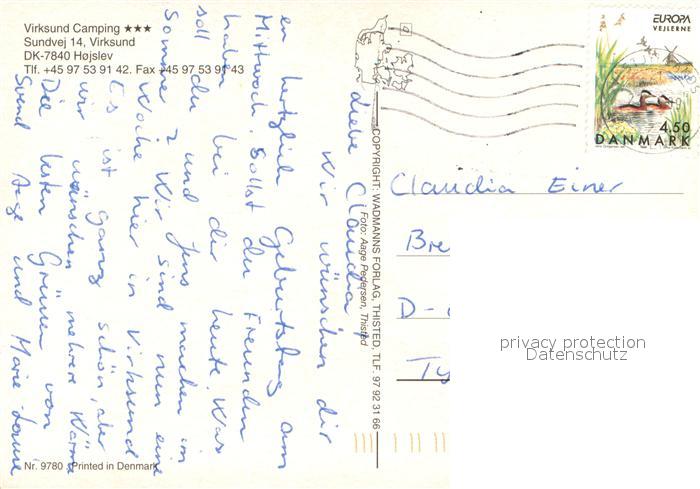 Virksund Camping ★★★
Sundvej 14, Virksund
DK-7840 Højslev
Tlf. +45 97 53 91 42. Fax +45 97 53 91 43
Liebe Claudia!
Wir wünschen dir
en hertzlich Geburtstag am
Mittwoch. Sollst du Freunden
haben bei dir heute. Was
soll du und Jens machen im
Sommer? Wir sind nun eine
Woche hier in Virksund
Es ist ganz schön, aber
wir wünschen mehrere Wärme
Die besten Grüssen von
Svend Aage und Marie-Louise
Nr. 9780 Printed in Denmark
COPYRIGHT: WADMANNS FORLAG, THISTED, TLF. 97 92 31 66
Foto: Aage Pedersen, Thisted
EUROPA
VEJLERNE
4.50
DANMARK
Claudia Einer
Bre
D-
Ty
privacy protection
Datenschutz